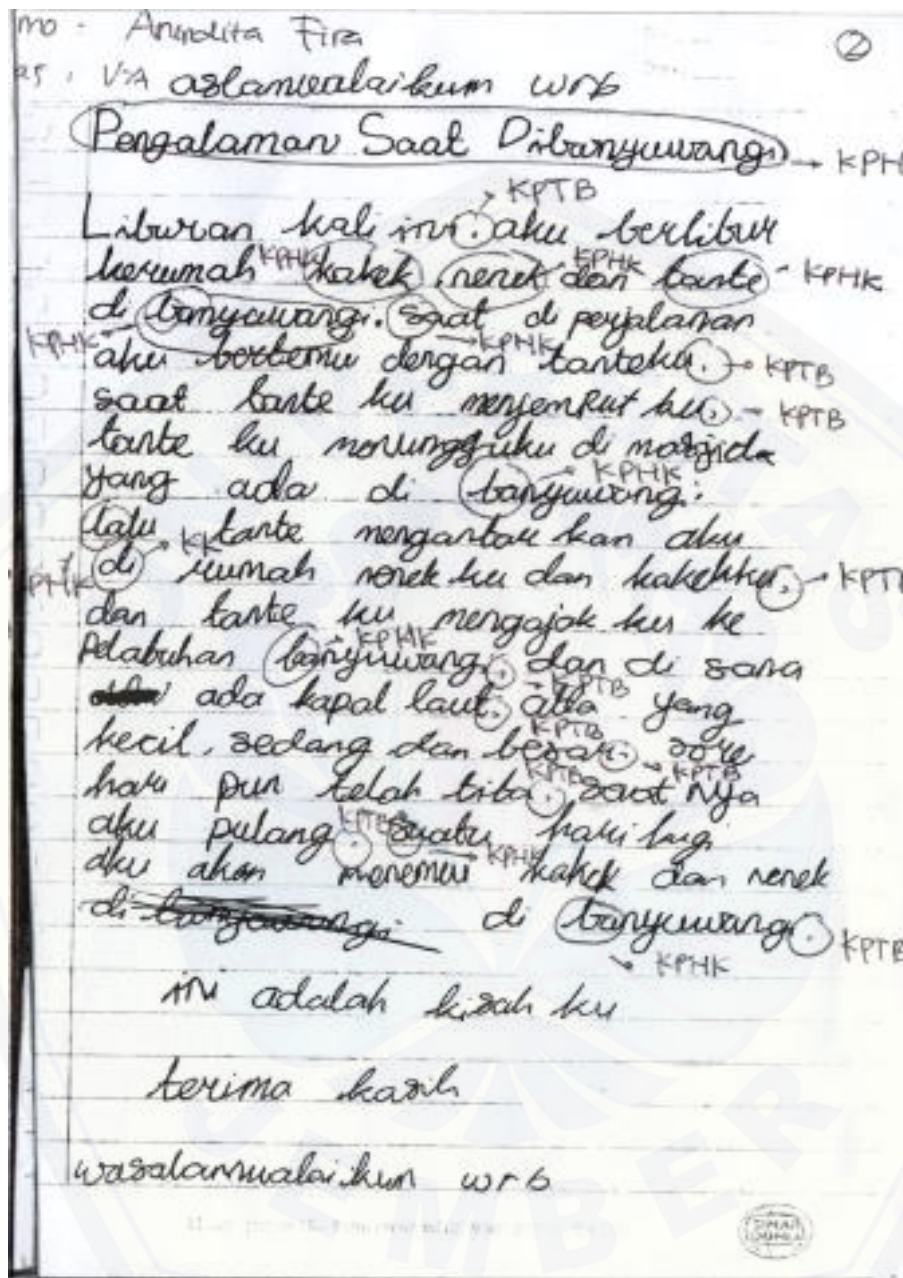 mo : Anindita Fira
②
as : VA aslamualaikum wrb
Pengalaman Saat Dibanyuwangi → KPH
KPTB
Liburan kali ini . aku berlibur
kerumah KPHK kakek , nenek KPHK dan tante KPHK
di banyuwangi . Saat di perjalanan
KPHK KPHK
aku bertemu dengan tanteku . → KPTB
saat tante ku menjemput ku . - KPTB
tante ku menungguku di masjid
yang ada di banyuwangi . KPHK
lalu tante mengantar kan aku
KK
PHK di rumah nenek ku dan kakekku . → KPTB
dan tante ku mengajak ku ke
Pelabuhan banyuwangi . dan di sana
KPHK KPTB
ada kapal laut . ada yang
KPTB
kecil , sedang dan besar . sore
KPTB KPTB
hari pun telah tiba . saat nya
aku pulang . Suatu hari lagi
KPTB KPHK
aku akan menemui kakek dan nenek
di banyuwangi di banyuwangi . KPTB
KPHK
ini adalah kisah ku
terima kasih
wasalamualaikum wrb